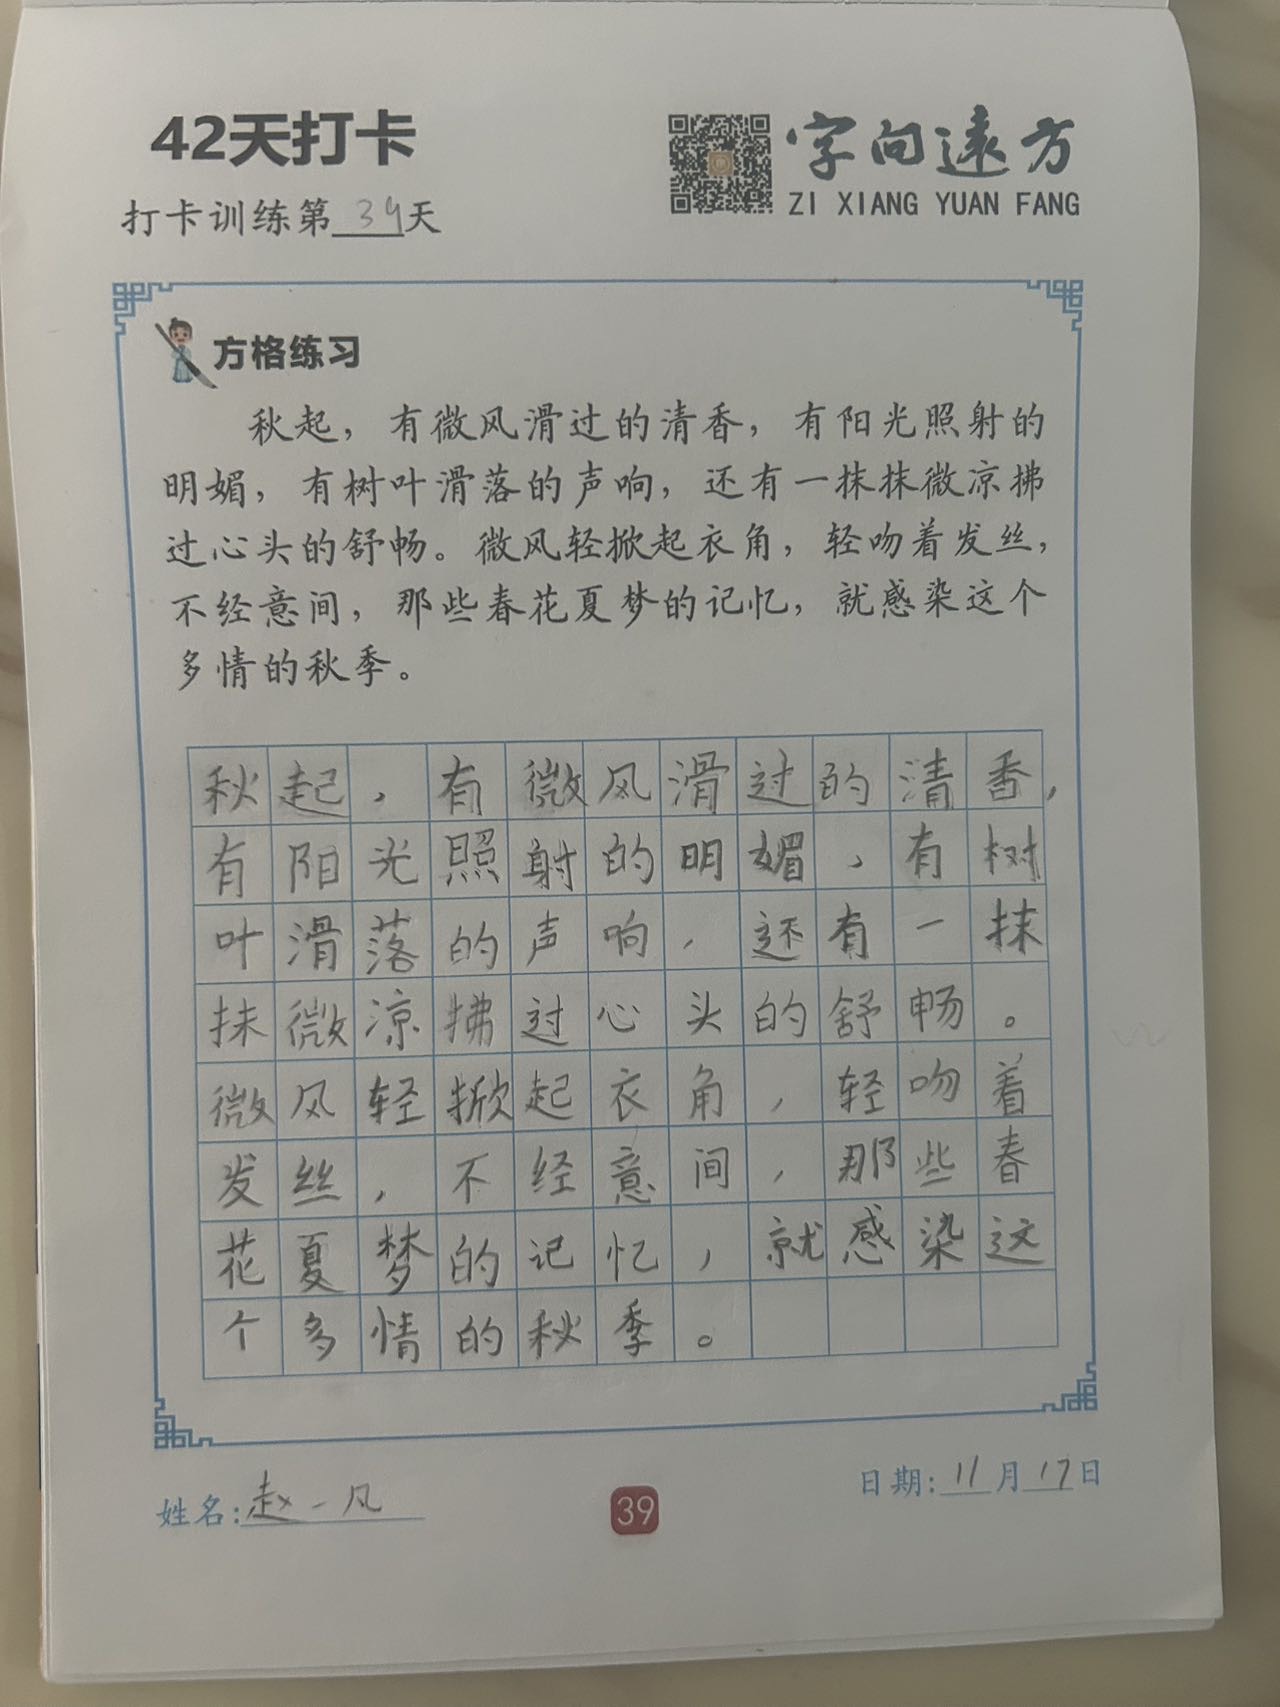 42天打卡
字向遠方
ZI XIANG YUAN FANG
打卡训练第39天
方格练习
秋起，有微风滑过的清香，有阳光照射的
明媚，有树叶滑落的声响，还有一抹抹微凉拂
过心头的舒畅。微风轻掀起衣角，轻吻着发丝，
不经意间，那些春花夏梦的记忆，就感染这个
多情的秋季。
秋起，有微风滑过的清香，
有阳光照射的明媚，有树
叶滑落的声响，还有一抹
抹微凉拂过心头的舒畅。
微风轻掀起衣角，轻吻着
发丝，不经意间，那些春
花夏梦的记忆，就感染这
个多情的秋季。
姓名:赵一风
39
日期:11月17日